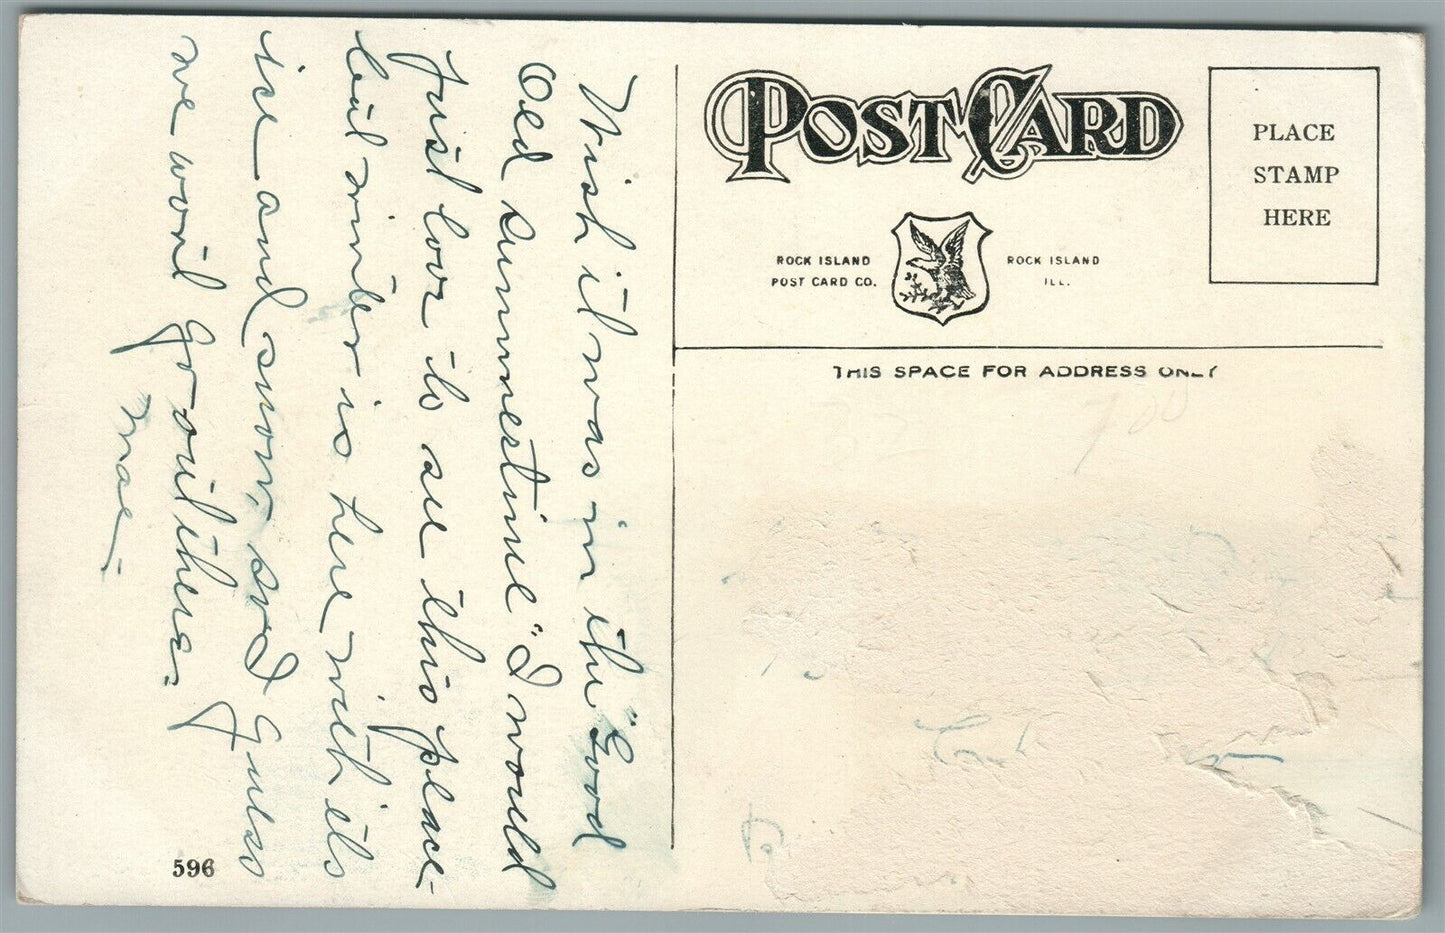 Wish it was in the "Good
Old Summertime" I would
just love to see this place-
but winter is here with its
ice and snow, so I guess
we won't go-out there-
Mae-
596
POST CARD
ROCK ISLAND
POST CARD CO.
ROCK ISLAND
ILL.
PLACE
STAMP
HERE
THIS SPACE FOR ADDRESS ONLY